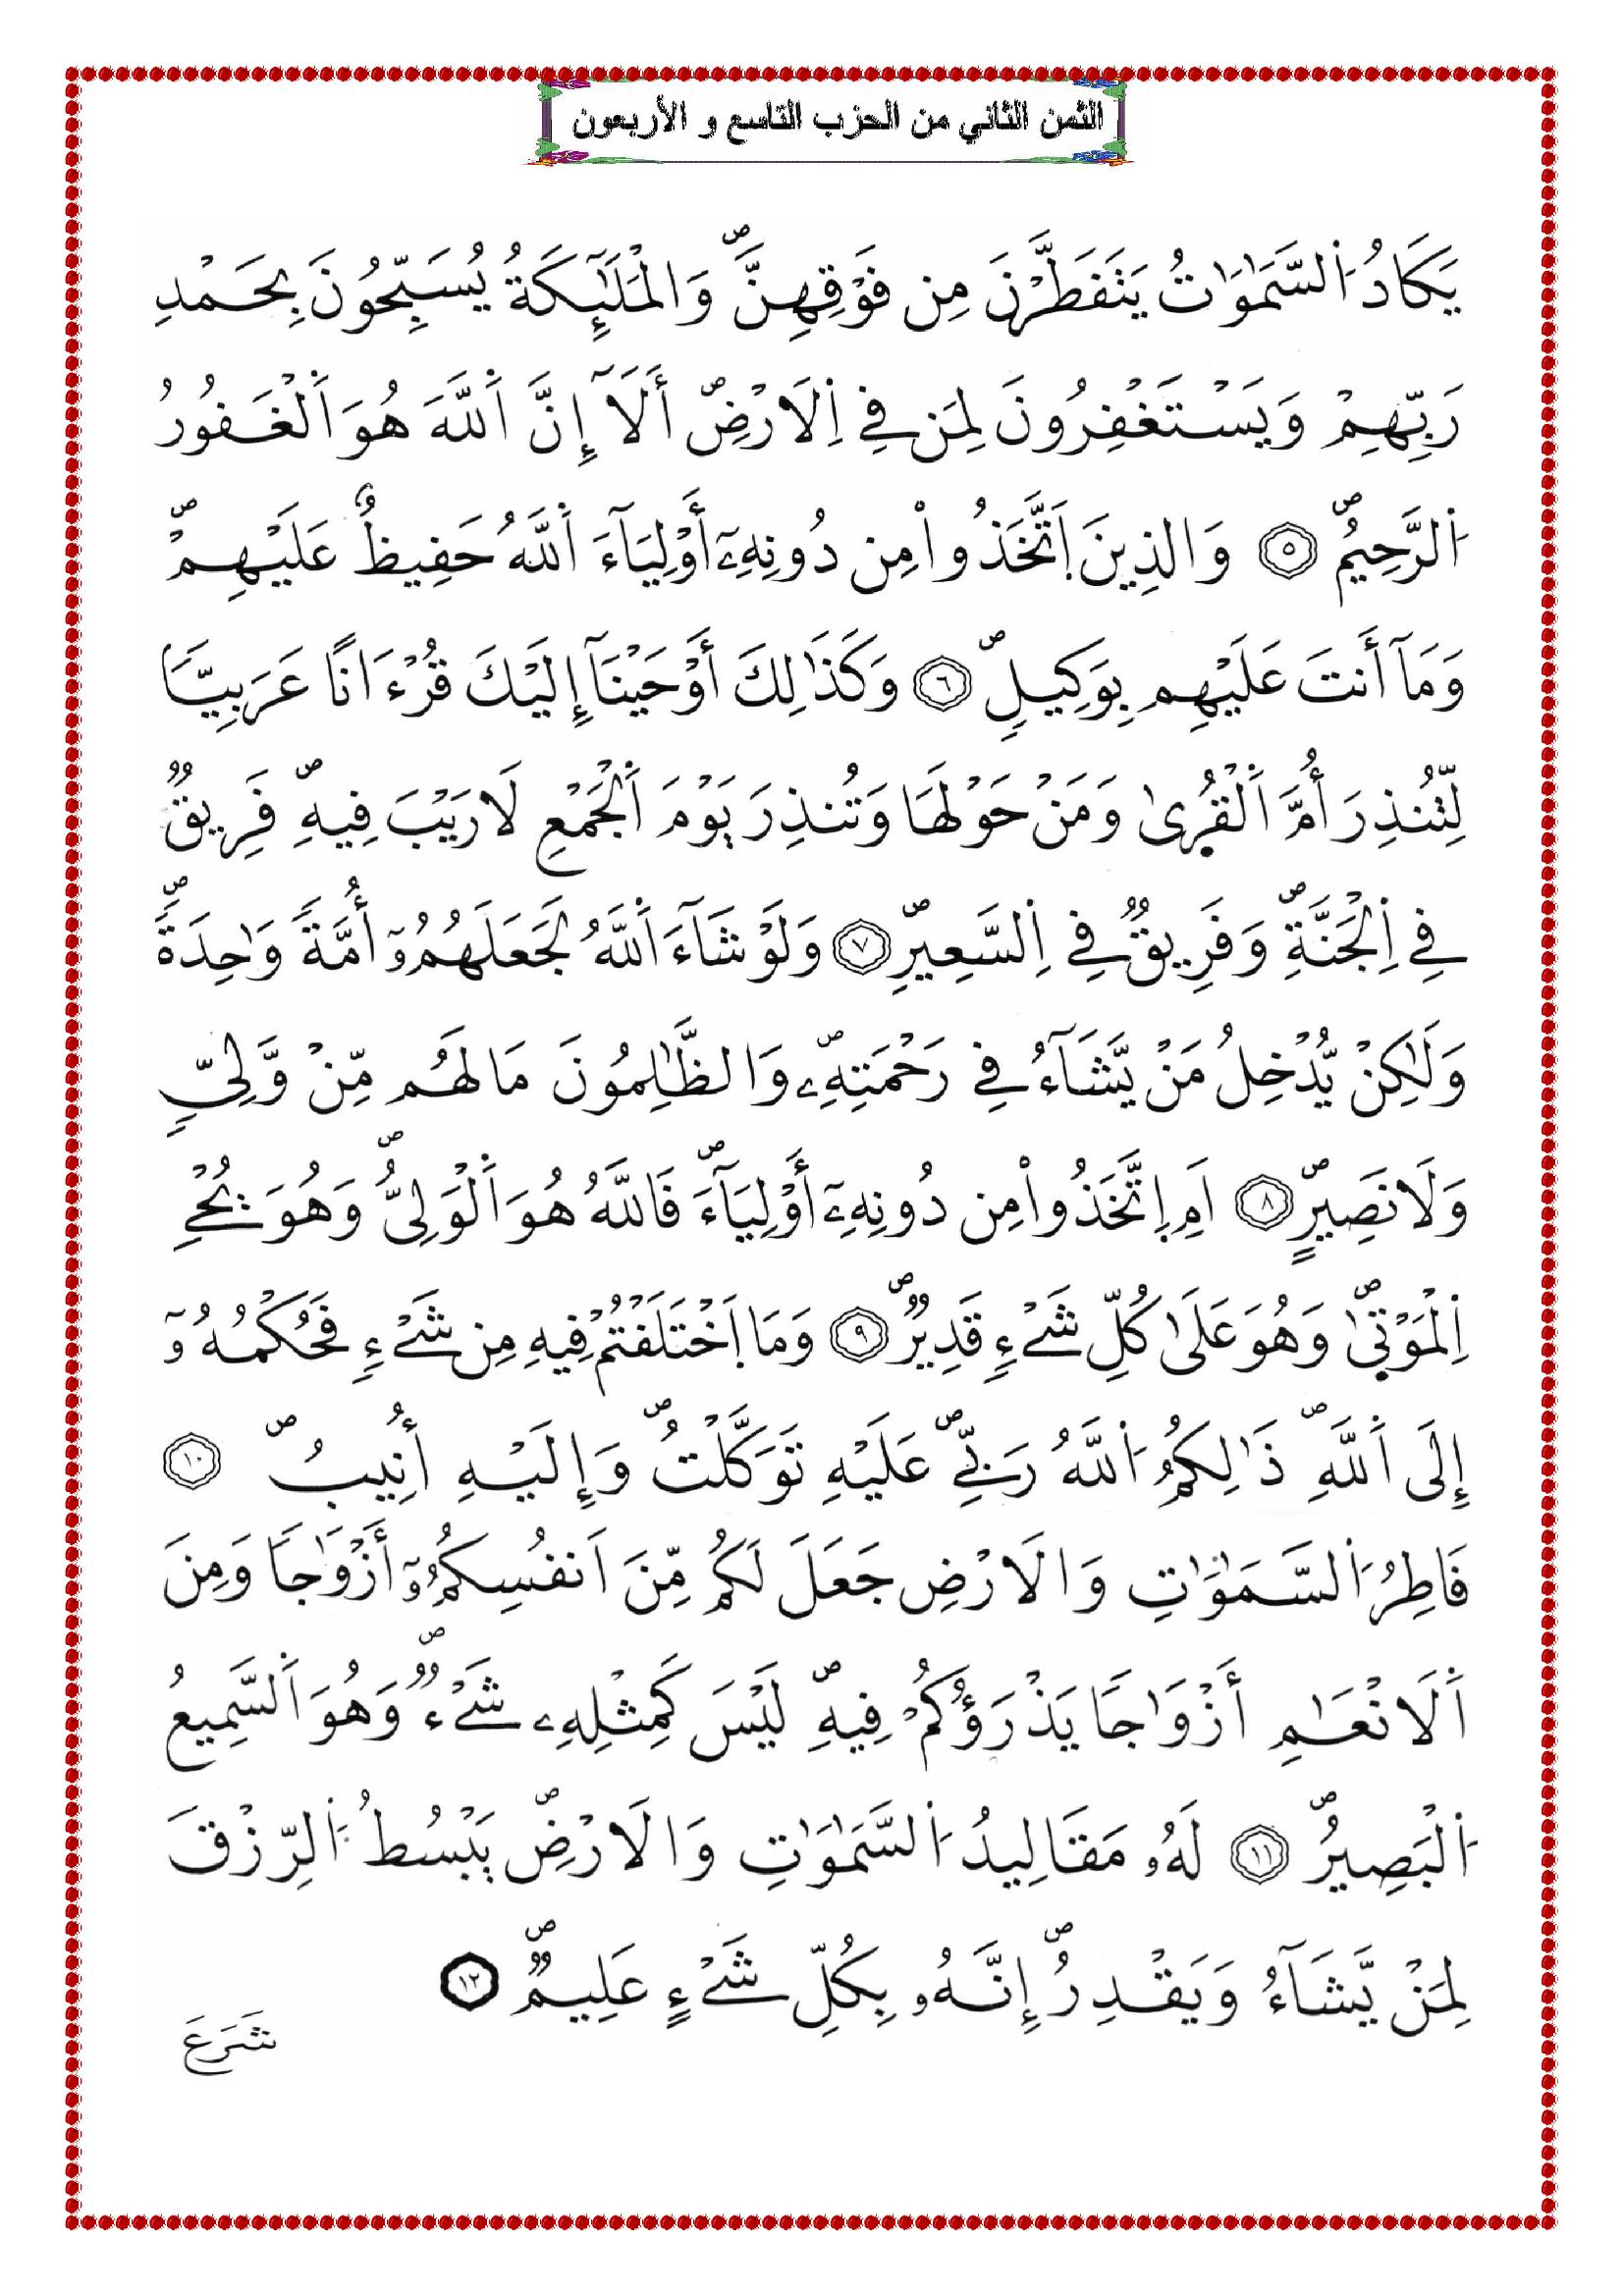 الثمن الثاني من الحزب التاسع و الأربعون
يَكَادُ اُ۬لسَّمَٰوَٰتُ يَتَفَطَّرْنَ مِن فَوْقِهِنَّۖ وَالْمَلَٰٓئِكَةُ يُسَبِّحُونَ بِحَمْدِ
رَبِّهِمْ وَيَسْتَغْفِرُونَ لِمَن فِي اِ۬لَارْضِۖ أَلَآ إِنَّ اَ۬للَّهَ هُوَ اَ۬لْغَفُورُ
اُ۬لرَّحِيمُۖ ٥ وَالذِينَ اَ۪تَّخَذُواْ مِن دُونِهِۦٓ أَوْلِيَآءَ اَ۬للَّهُ حَفِيظٌ عَلَيْهِمْۖ
وَمَآ أَنتَ عَلَيْهِم بِوَكِيلٖۖ ٦ وَكَذَٰلِكَ أَوْحَيْنَآ إِلَيْكَ قُرْءَاناً عَرَبِيّاٗ
لِّتُنذِرَ أُمَّ اَ۬لْقُرَىٰ وَمَنْ حَوْلَهَا وَتُنذِرَ يَوْمَ اَ۬لْجَمْعِ لَا رَيْبَ فِيهِۖ فَرِيقٞ
فِي اِ۬لْجَنَّةِۖ وَفَرِيقٞ فِي اِ۬لسَّعِيرِۖ ٧ وَلَوْ شَآءَ اَ۬للَّهُ لَجَعَلَهُمُۥٓ أُمَّةٗ وَٰحِدَةٗۖ
وَلَٰكِنْ يُّدْخِلُ مَنْ يَّشَآءُ فِي رَحْمَتِهِۦۖ وَالظَّٰلِمُونَ مَا لَهُم مِّنْ وَّلِيّٖ
وَلَا نَصِيرٍۖ ٨ اَمِ اِ۪تَّخَذُواْ مِن دُونِهِۦٓ أَوْلِيَآءَۖ فَاللَّهُ هُوَ اَ۬لْوَلِيُّۖ وَهُوَ يُحْيِ
اِ۬لْمَوْتَىٰۖ وَهُوَ عَلَىٰ كُلِّ شَےْءٖ قَدِيرٞۖ ٩ وَمَا اَ۪خْتَلَفْتُمْ فِيهِ مِن شَےْءٖ فَحُكْمُهُۥٓ
إِلَى اَ۬للَّهِۖ ذَٰلِكُمُ اُ۬للَّهُ رَبِّيۖ عَلَيْهِ تَوَكَّلْتُۖ وَإِلَيْهِ أُنِيبُۖ ١٠
فَاطِرُ اُ۬لسَّمَٰوَٰتِ وَالَارْضِ جَعَلَ لَكُم مِّنَ اَنفُسِكُمُۥٓ أَزْوَٰجاٗ وَمِنَ
اَ۬لَانْعَٰمِ أَزْوَٰجاٗ يَذْرَؤُكُمْ فِيهِۖ لَيْسَ كَمِثْلِهِۦ شَےْءٞۖ وَهُوَ اَ۬لسَّمِيعُ
اُ۬لْبَصِيرُۖ ١١ لَهُۥ مَقَالِيدُ اُ۬لسَّمَٰوَٰتِ وَالَارْضِۖ يَبْسُطُ اُ۬لرِّزْقَ
لِمَنْ يَّشَآءُ وَيَقْدِرُۖ إِنَّهُۥ بِكُلِّ شَےْءٍ عَلِيمٞۖ ١٢
شَرَعَ